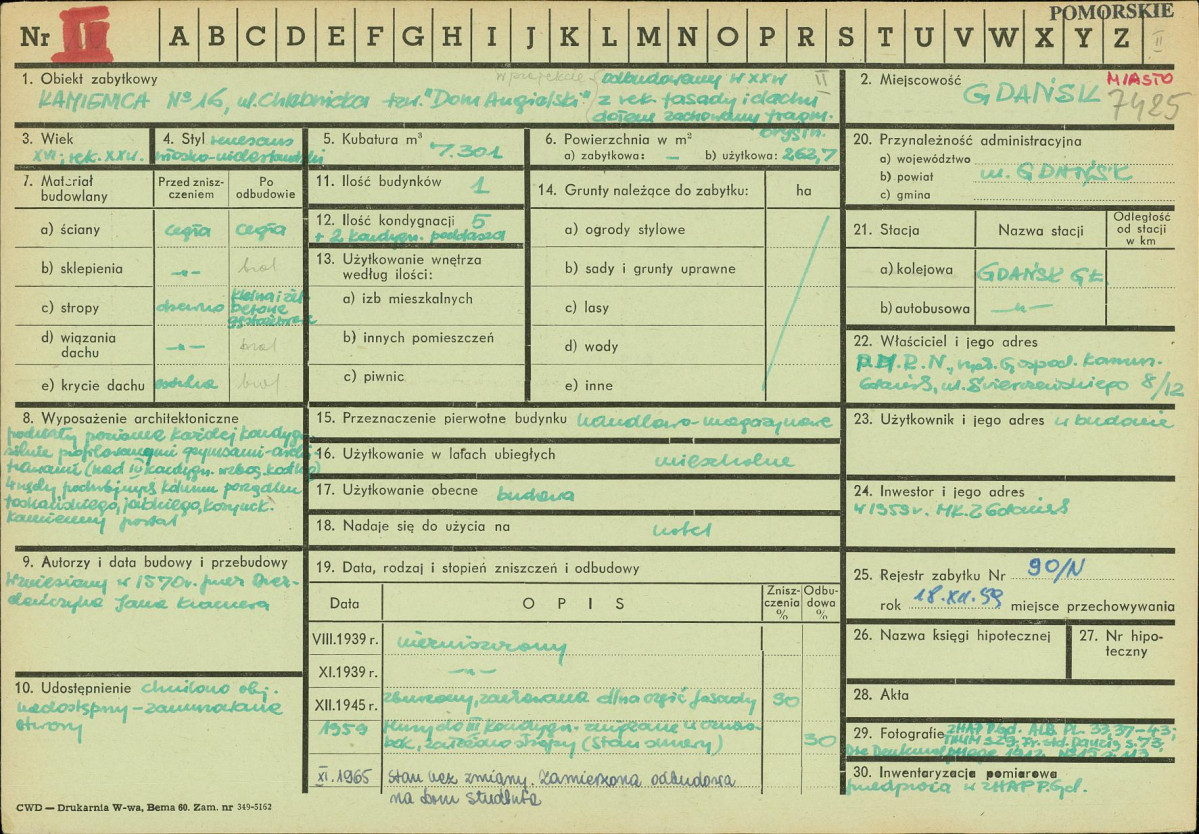 POMORSKIE
Nr II A B C D E F G H I J K L M N O P R S T U V W X Y Z II
1. Obiekt zabytkowy
w projekcie odbudowany w XX w II
KAMIENICA No 16, ul. Chlebnicka tzw. "Dom Angielski" z rek. fasady i dachu
dołem zachowany fragm.
orygin.
2. Miejscowość MIASTO
GDAŃSK 7425
3. Wiek
XVI; rek. XX w.
4. Styl renesans
włosko-niderlandzki
5. Kubatura m³ 7.301
6. Powierzchnia w m²
a) zabytkowa: — b) użytkowa: 262,7
7. Materiał budowlany
Przed zniszczeniem
Po odbudowie
a) ściany cegła cegła
b) sklepienia -„- brak
c) stropy drewno Kleina i żelbetone
d) wiązania dachu -„- brak
e) krycie dachu brak
8. Wyposażenie architektoniczne
podziały poziome każdej kondygn.
silnie profilowanymi gzymsami-
(nad IV kondygn.
toskańskiego, jońskiego, korynck.
kamienny portal
9. Autorzy i data budowy i przebudowy
Wzniesiony w 1570 r. przez Drez-
deńczyka Jana Kramera
10. Udostępnienie chwilowo obj.
niedostępny – zamurowane
otwory
11. Ilość budynków 1
12. Ilość kondygnacji 5
+ 2 kondygn. poddasza
13. Użytkowanie wnętrza
według ilości:
a) izb mieszkalnych
b) innych pomieszczeń
c) piwnic
14. Grunty należące do zabytku: ha
a) ogrody stylowe
b) sady i grunty uprawne
c) lasy
d) wody
e) inne
15. Przeznaczenie pierwotne budynku handlowo-magazynowe
16. Użytkowanie w latach ubiegłych mieszkalne
17. Użytkowanie obecne budowa
18. Nadaje się do użycia na hotel
19. Data, rodzaj i stopień zniszczeń i odbudowy
Data OPIS Zniszczenia % Odbudowa %
VIII.1939 r. niezniszczony
XI.1939 r. -„-
XII.1945 r. zburzony, zachowana dolna część fasady 90
1959 Mury do III kondygn.
bok, założono stropy (stan surowy) 30
XI. 1965 Stan bez zmiany. Zamierzona odbudowa
na dom studenta
20. Przynależność administracyjna
a) województwo
b) powiat m. GDAŃSK
c) gmina
21. Stacja Nazwa stacji Odległość od stacji w km
a) kolejowa GDAŃSK GŁ.
b) autobusowa -„-
22. Właściciel i jego adres
P.M.R.N., Gospod. Komun.
Gdańsk, ul. Świerczewskiego 8/12
23. Użytkownik i jego adres w budowie
24. Inwestor i jego adres
w 1959 r. MKZ Gdańsk
25. Rejestr zabytku Nr 90/N
rok 18.XII.59 miejsce przechowywania
26. Nazwa księgi hipotecznej
27. Nr hipoteczny
28. Akta
29. Fotografie ZHAP PGd. Alb. PL. 33, 37-43;
30. Inwentaryzacja pomiarowa
w ZHAP P.Gd.
CWD — Drukarnia W-wa, Bema 60. Zam. nr 349-5162